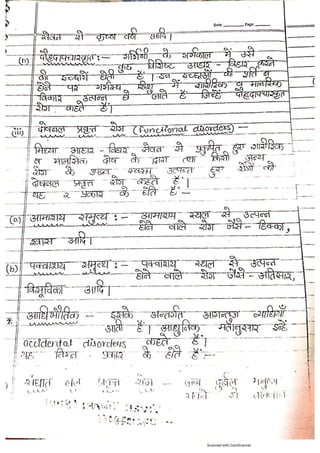 Date ........... Page ..........
सेवन से कुष्ठ वर्ण आदि।
(b) दौहृदापचारकृत :- गर्भिणी के गर्भकाल में उसे
कुछ विशिष्ट आहार - विहार करने
की इच्छायें होती हैं। इन इच्छाओं की पूर्ति न
होने पर गर्भस्थ शिशु में शारीरिक व मानसिक
विकार उत्पन्न हो जाते हैं जिन्हें दौहृदापचारकृत
रोग कहते हैं।
(iii) दोषबल प्रवृत्त रोग (Functional disorders) —
मिथ्या आहार - विहार सेवन से प्रकुपित हुए शारीरिक
व मानसिक दोष के द्वारा तथा किसी अन्य
रोग के स्वरूप उत्पन्न हुए रोगों को
दोषबल प्रवृत्त रोग कहते हैं।
यह २ प्रकार के होते हैं —
(a) आमाशय समुत्थ :- आमाशय स्थल से उत्पन्न
होने वाले रोग जैसे - हिक्का,
श्वास आदि।
(b) पक्वाशय समुत्थ :- पक्वाशय स्थल से उत्पन्न
होने वाले रोग जैसे - अतिसार,
विसूचिका आदि।
* आधिभौतिक - इसके अन्तर्गत आगन्तुज व्याधियाँ
आती हैं। आधुनिक मतानुसार इन्हें
accidental disorders कहते हैं।
यह निम्न प्रकार के होते हैं :-
संघात बल प्रवृत्त रोग - जब दुर्बल मनुष्य
से बलवान
Scanned with CamScanner